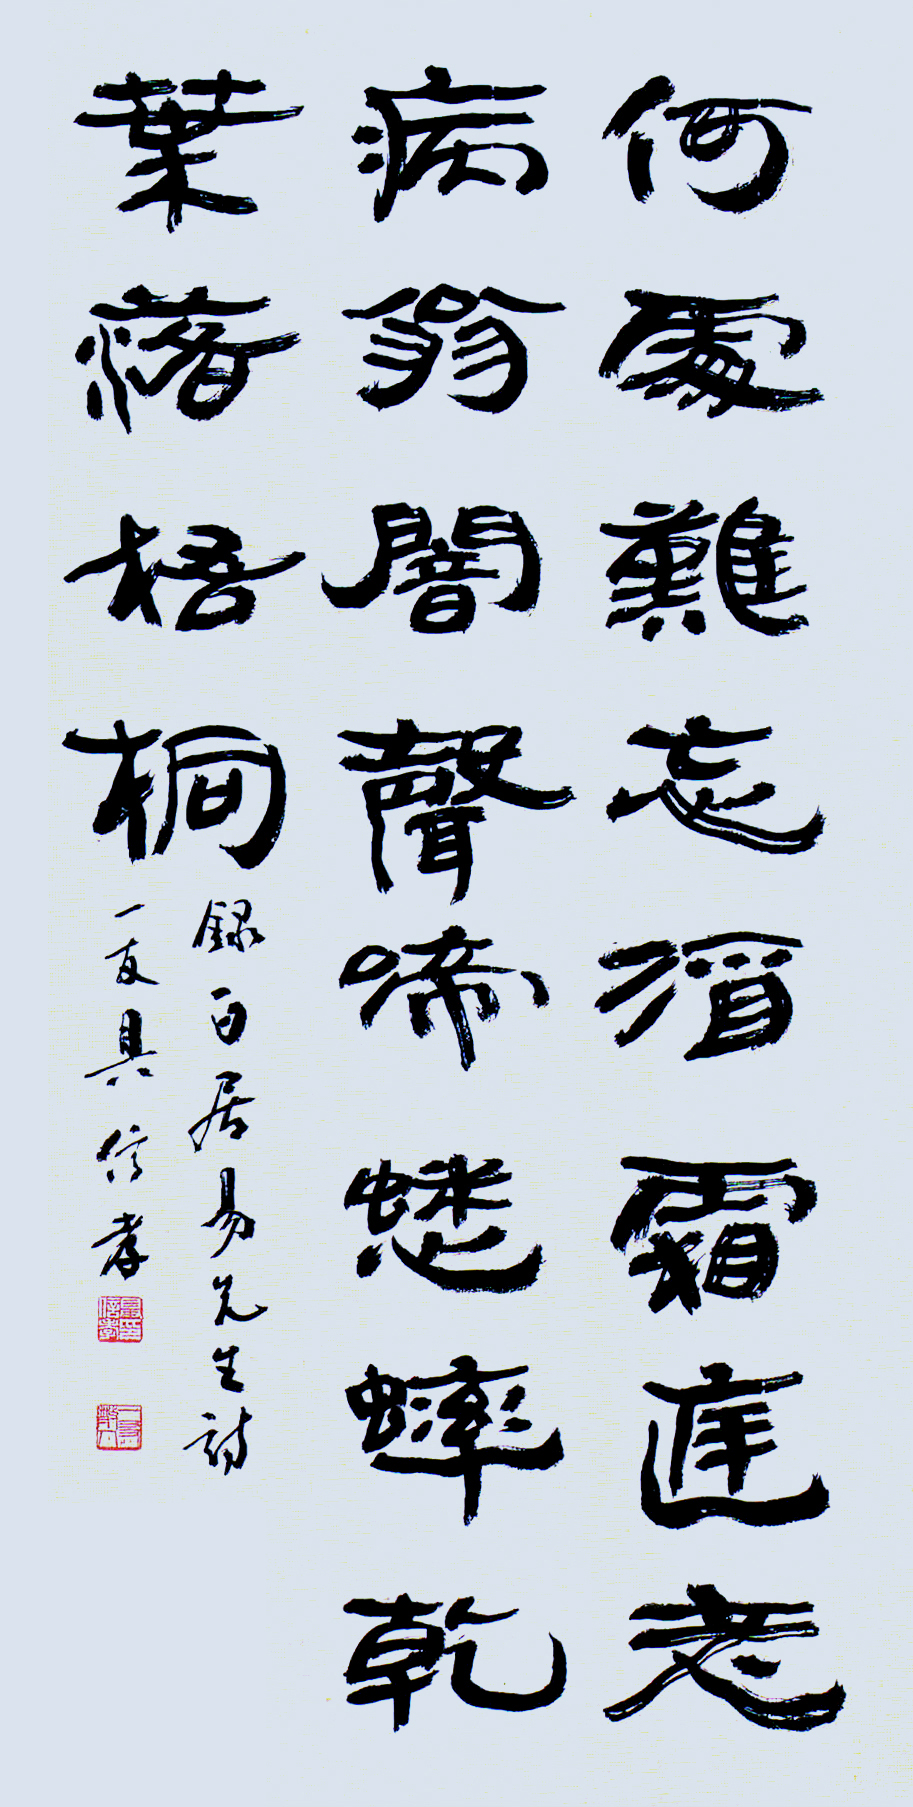 何處難忘酒霜庭老
病翁闇聲啼蟋蟀乾
葉落梧桐
錄白居易先生詩
一友具信孝